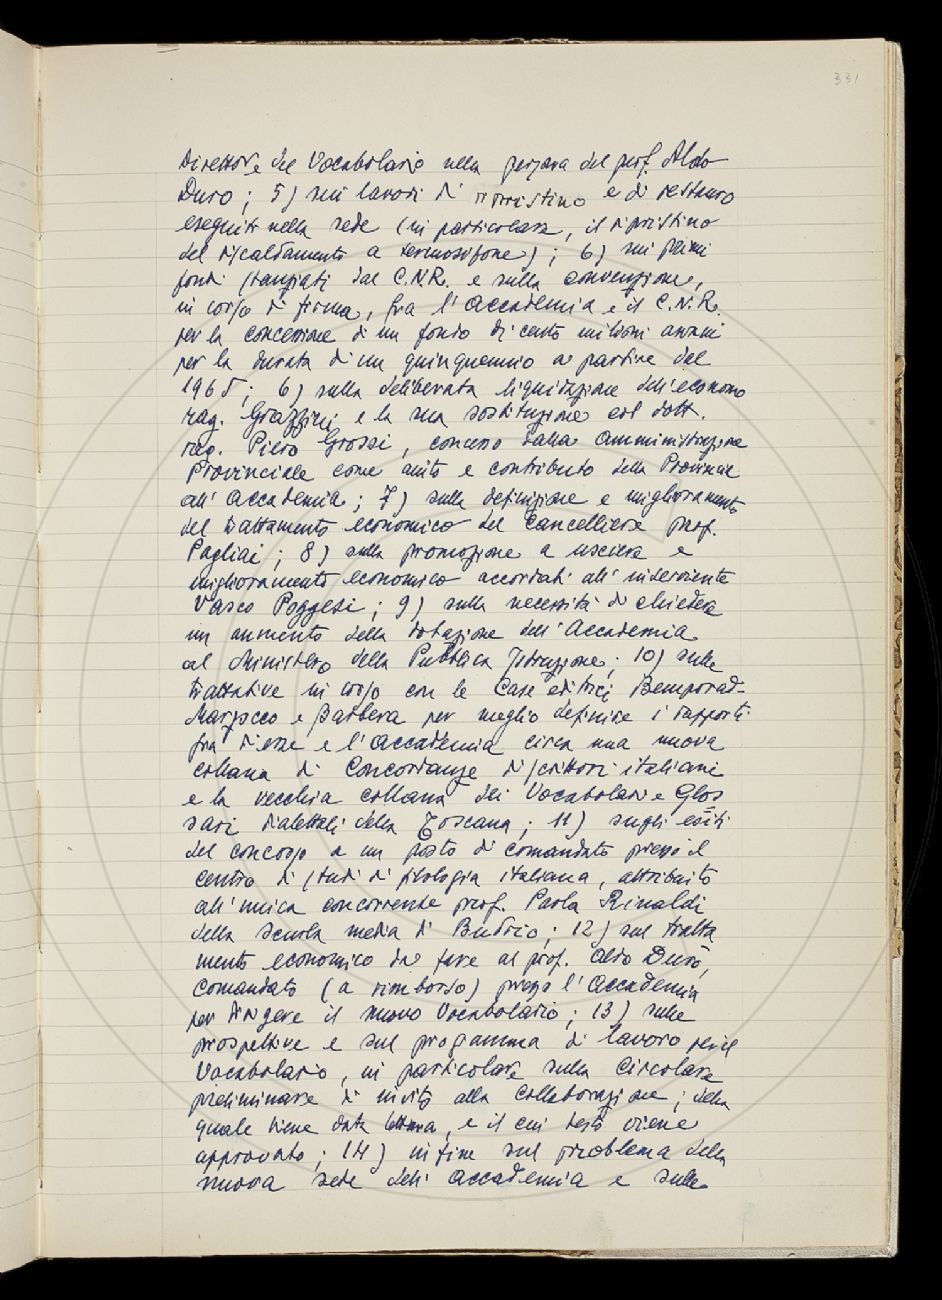 331
Direttore del Vocabolario nella persona del prof. Aldo
Duro; 5) sui lavori di ripristino e di restauro
eseguiti nella sede (in particolare, il ripristino
del riscaldamento a termosifone); 6) sui primi
fondi stanziati dal C.N.R. e sulla convenzione,
in corso di firma, fra l'Accademia e il C.N.R.
per la concessione di un fondo di cento milioni annui
per la durata di un quinquennio a partire dal
1965; 6) sulla deliberata liquidazione dell'economo
rag. Grazzini e la sua sostituzione col dott.
rag. Piero Grossi, concesso dalla Amministrazione
Provinciale come aiuto e contributo della Provincia
all'Accademia; 7) sulla definizione e miglioramento
del trattamento economico del Cancelliere prof.
Pagliai; 8) sulla promozione a usciere e
miglioramento economico accordati all'inserviente
Vasco Poggesi; 9) sulla necessità di chiedere
un aumento della dotazione dell'Accademia
al Ministero della Pubblica Istruzione; 10) sulle
trattative in corso con le Case editrici Bemporad-
Marzocco e Barbera per meglio definire i rapporti
fra di esse e l'Accademia circa una nuova
collana di Concordanze di scrittori italiani
e la vecchia collana dei Vocabolari e Glos
sari dialettali della Toscana; 11) sugli esiti
del concorso a un posto di comandato presso il
centro di studi di filologia italiana, attribuito
all'unica concorrente prof. Paola Rinaldi
della scuola media di Budrio; 12) sul tratta
mento economico da fare al prof. Aldo Duro,
comandato (a rimborso) presso l'Accademia
per dirigere il nuovo Vocabolario; 13) sulle
prospettive e sul progamma di lavoro per il
Vocabolario, in particolare sulla Circolare
preliminare di invito alla collaborazione; della
quale viene data lettura, e il cui testo viene
approvato; 14) infine sul problema della
nuova sede dell'Accademia e sulle